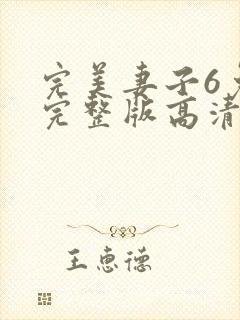 完美妻子6免
完整版高清
王惠德